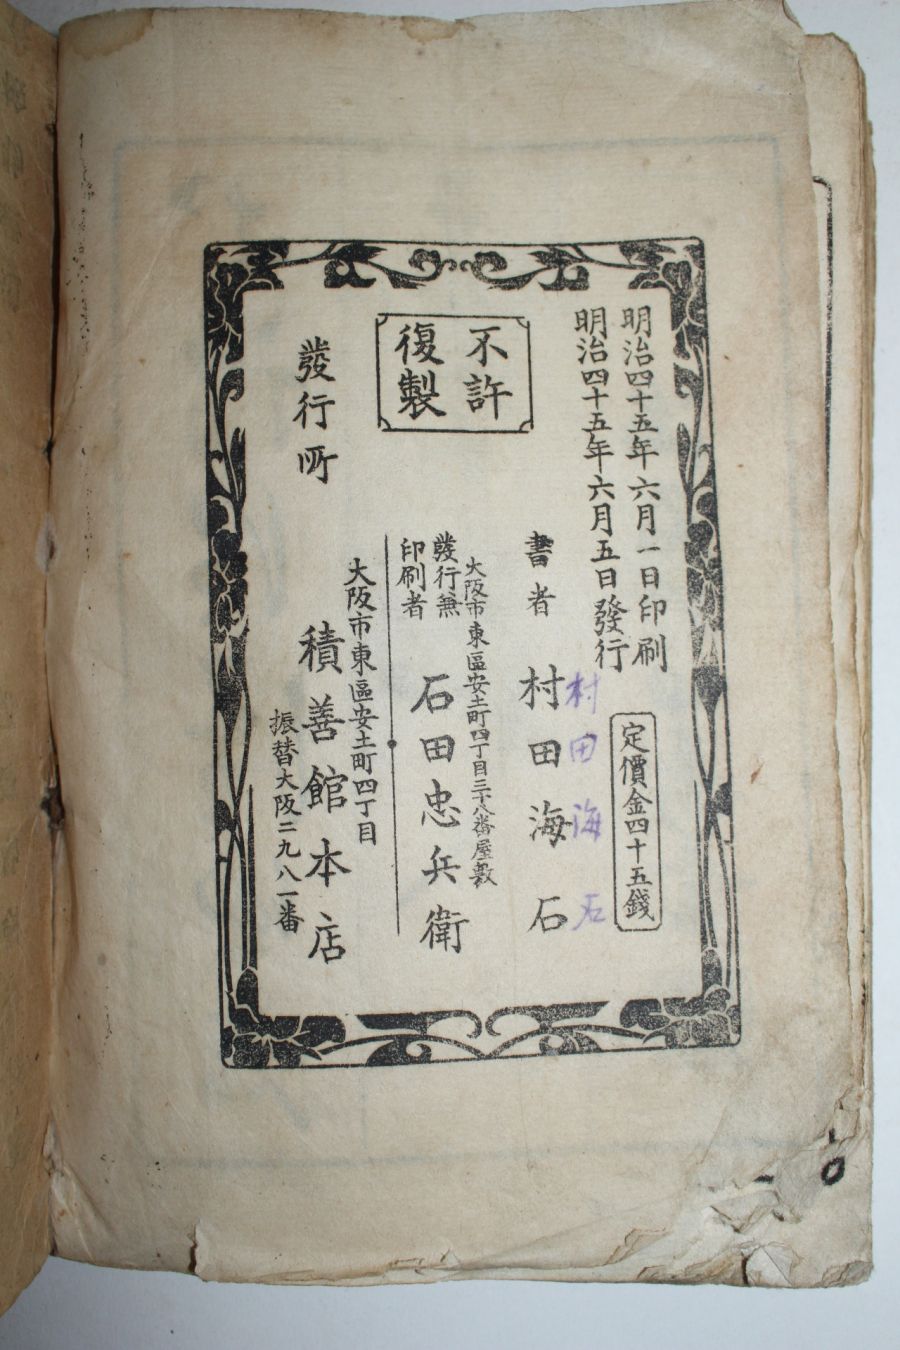 明治四十五年六月一日印刷
明治四十五年六月五日發行
定價金四十五錢
不許
復製
書者 村田海石
村田海石
大阪市東區安土町四丁目三十八番屋敷
發行兼
印刷者
石田忠兵衛
大阪市東區安土町四丁目
發行所 積善館本店
振替大阪二九八一番